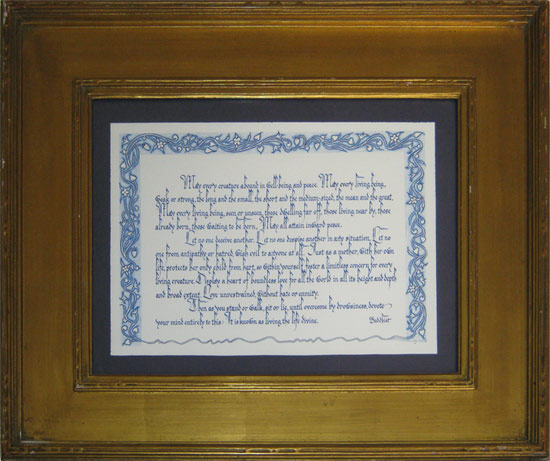 May every creature abound in well-being and peace. May every living being,
weak or strong, the long and the small, the short and the medium-sized, the mean and the great,
May every living being, seen or unseen, those dwelling far off, those living near by, those
already born, those waiting to be born, May all attain inward peace.
Let no one deceive another, Let no one despise another in any situation, Let no
one from antipathy or hatred, wish evil to anyone at all. Just as a mother, with her own
life, protects her only child from hurt, so within yourself foster a limitless concern for every
living creature. Display a heart of boundless love for all the world in all its height and depth
and broad extent, Love unrestrained, without hate or enmity.
Then as you stand or walk, sit or lie, until overcome by drowsiness, devote
your mind entirely to this: It is known as living the life divine.